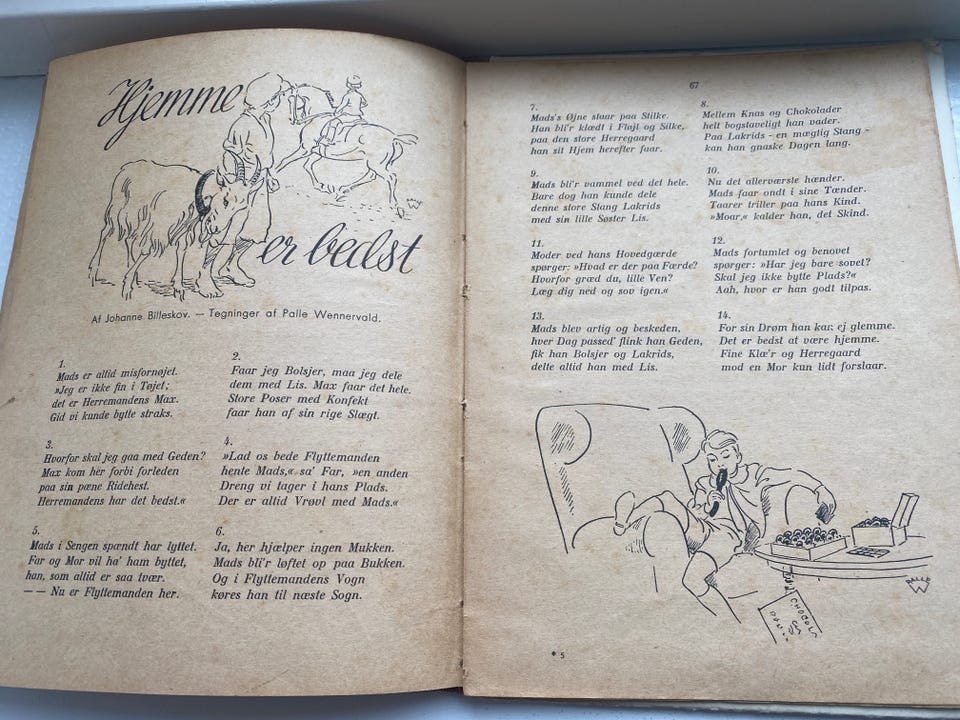 Hjemme
er bedst
Af Johanne Billeskov. — Tegninger af Palle Wennervald.
1.
Mads er altid misfornøjet.
»Jeg er ikke fin i Tøjet;
det er Herremandens Max.
Gid vi kunde bytte straks.
2.
Faar jeg Bolsjer, maa jeg dele
dem med Lis. Max faar det hele.
Store Poser med Konfekt
faar han af sin rige Slægt.
3.
Hvorfor skal jeg gaa med Geden?
Max kom her forbi forleden
paa sin pæne Ridehest.
Herremandens har det bedst.«
4.
»Lad os bede Flyttemanden
hente Mads,« sa' Far, »en anden
Dreng vi tager i hans Plads.
Der er altid Vrøvl med Mads.«
5.
Mads i Sengen spændt har lyttet.
Far og Mor vil ha' ham byttet,
han, som altid er saa tvær.
— — Nu er Flyttemanden her.
6.
Ja, her hjælper ingen Mukken.
Mads bli'r løftet op paa Bukken.
Og i Flyttemandens Vogn
køres han til næste Sogn.
67
7.
Mads's Øjne staar paa Stilke.
Han bli'r klædt i Fløjl og Silke,
paa den store Herregaard
han sit Hjem herefter faar.
8.
Mellem Knas og Chokolader
helt bogstaveligt han vader.
Paa Lakrids - en mægtig Stang -
kan han gnaske Dagen lang.
9.
Mads bli'r vammel ved det hele.
Bare dog han kunde dele
denne store Stang Lakrids
med sin lille Søster Lis.
10.
Nu det allerværste hænder.
Mads faar ondt i sine Tænder.
Taarer triller paa hans Kind.
»Moar,« kalder han, det Skind.
11.
Moder ved hans Hovedgærde
spørger: »Hvad er der paa Færde?
Hvorfor græd du, lille Ven?
Læg dig ned og sov igen.«
12.
Mads fortumlet og benovet
spørger: »Har jeg bare sovet?
Skal jeg ikke bytte Plads?«
Aah, hvor er han godt tilpas.
13.
Mads blev artig og beskeden,
hver Dag passed' flink han Geden,
fik han Bolsjer og Lakrids,
delte altid han med Lis.
14.
For sin Drøm han kan ej glemme.
Det er bedst at være hjemme.
Fine Klæ'r og Herregaard
mod en Mor kun lidt forslaar.
PALLE
W
* 5